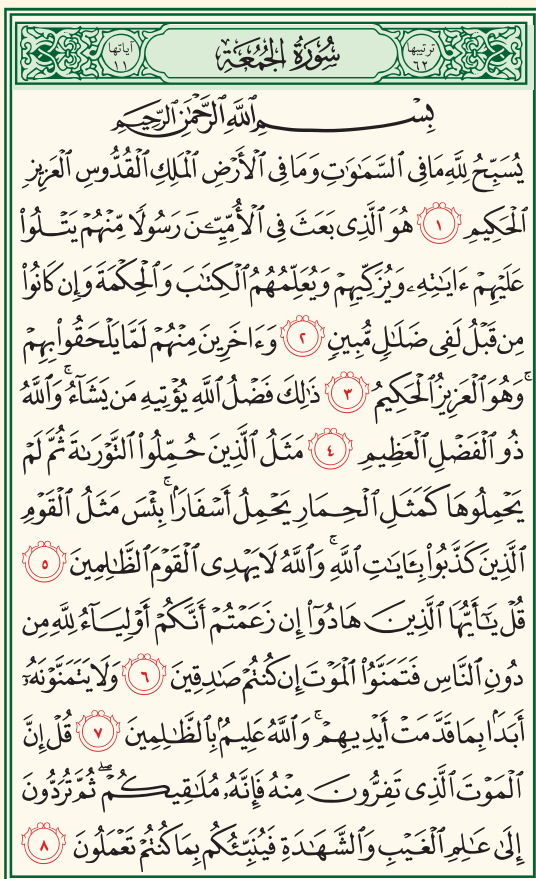 ترتيبها ٦٢
سُورَةُ الجُمُعَةِ
آياتها ١١
بِسْمِ اللَّهِ الرَّحْمَٰنِ الرَّحِيمِ
يُسَبِّحُ لِلَّهِ مَا فِى السَّمَٰوَٰتِ وَمَا فِى الْأَرْضِ الْمَلِكِ الْقُدُّوسِ الْعَزِيزِ
الْحَكِيمِ ١ هُوَ الَّذِى بَعَثَ فِى الْأُمِّيِّـۧنَ رَسُولًا مِّنْهُمْ يَتْلُوا۟
عَلَيْهِمْ ءَايَٰتِهِۦ وَيُزَكِّيهِمْ وَيُعَلِّمُهُمُ الْكِتَٰبَ وَالْحِكْمَةَ وَإِن كَانُوا۟
مِن قَبْلُ لَفِى ضَلَٰلٍ مُّبِينٍ ٢ وَءَاخَرِينَ مِنْهُمْ لَمَّا يَلْحَقُوا۟ بِهِمْ
ۚ وَهُوَ الْعَزِيزُ الْحَكِيمُ ٣ ذَٰلِكَ فَضْلُ اللَّهِ يُؤْتِيهِ مَن يَشَآءُ ۚ وَاللَّهُ
ذُو الْفَضْلِ الْعَظِيمِ ٤ مَثَلُ الَّذِينَ حُمِّلُوا۟ التَّوْرَىٰةَ ثُمَّ لَمْ
يَحْمِلُوهَا كَمَثَلِ الْحِمَارِ يَحْمِلُ أَسْفَارًۢا ۚ بِئْسَ مَثَلُ الْقَوْمِ
الَّذِينَ كَذَّبُوا۟ بِـَٔايَٰتِ اللَّهِ ۚ وَاللَّهُ لَا يَهْدِى الْقَوْمَ الظَّٰلِمِينَ ٥
قُلْ يَٰٓأَيُّهَا الَّذِينَ هَادُوٓا۟ إِن زَعَمْتُمْ أَنَّكُمْ أَوْلِيَآءُ لِلَّهِ مِن
دُونِ النَّاسِ فَتَمَنَّوُا۟ الْمَوْتَ إِن كُنتُمْ صَٰدِقِينَ ٦ وَلَا يَتَمَنَّوْنَهُۥٓ
أَبَدًۢا بِمَا قَدَّمَتْ أَيْدِيهِمْ ۚ وَاللَّهُ عَلِيمٌۢ بِالظَّٰلِمِينَ ٧ قُلْ إِنَّ
الْمَوْتَ الَّذِى تَفِرُّونَ مِنْهُ فَإِنَّهُۥ مُلَٰقِيكُمْ ۖ ثُمَّ تُرَدُّونَ
إِلَىٰ عَٰلِمِ الْغَيْبِ وَالشَّهَٰدَةِ فَيُنَبِّئُكُم بِمَا كُنتُمْ تَعْمَلُونَ ٨